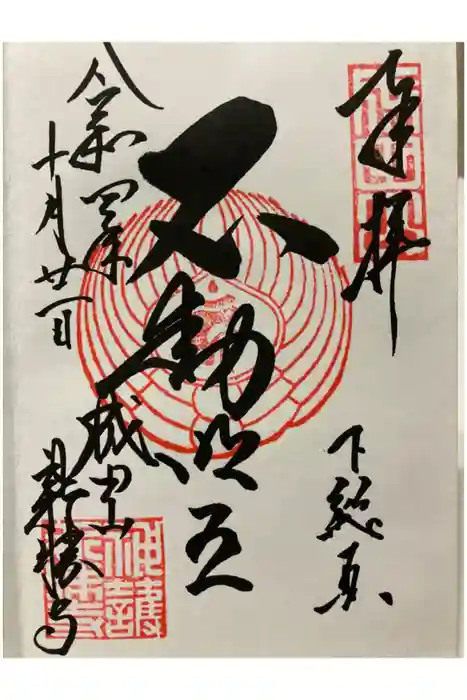 奉拝
下総
不動明王
令和四年
十月廿一日
成田山
新勝寺
神護
新勝寺